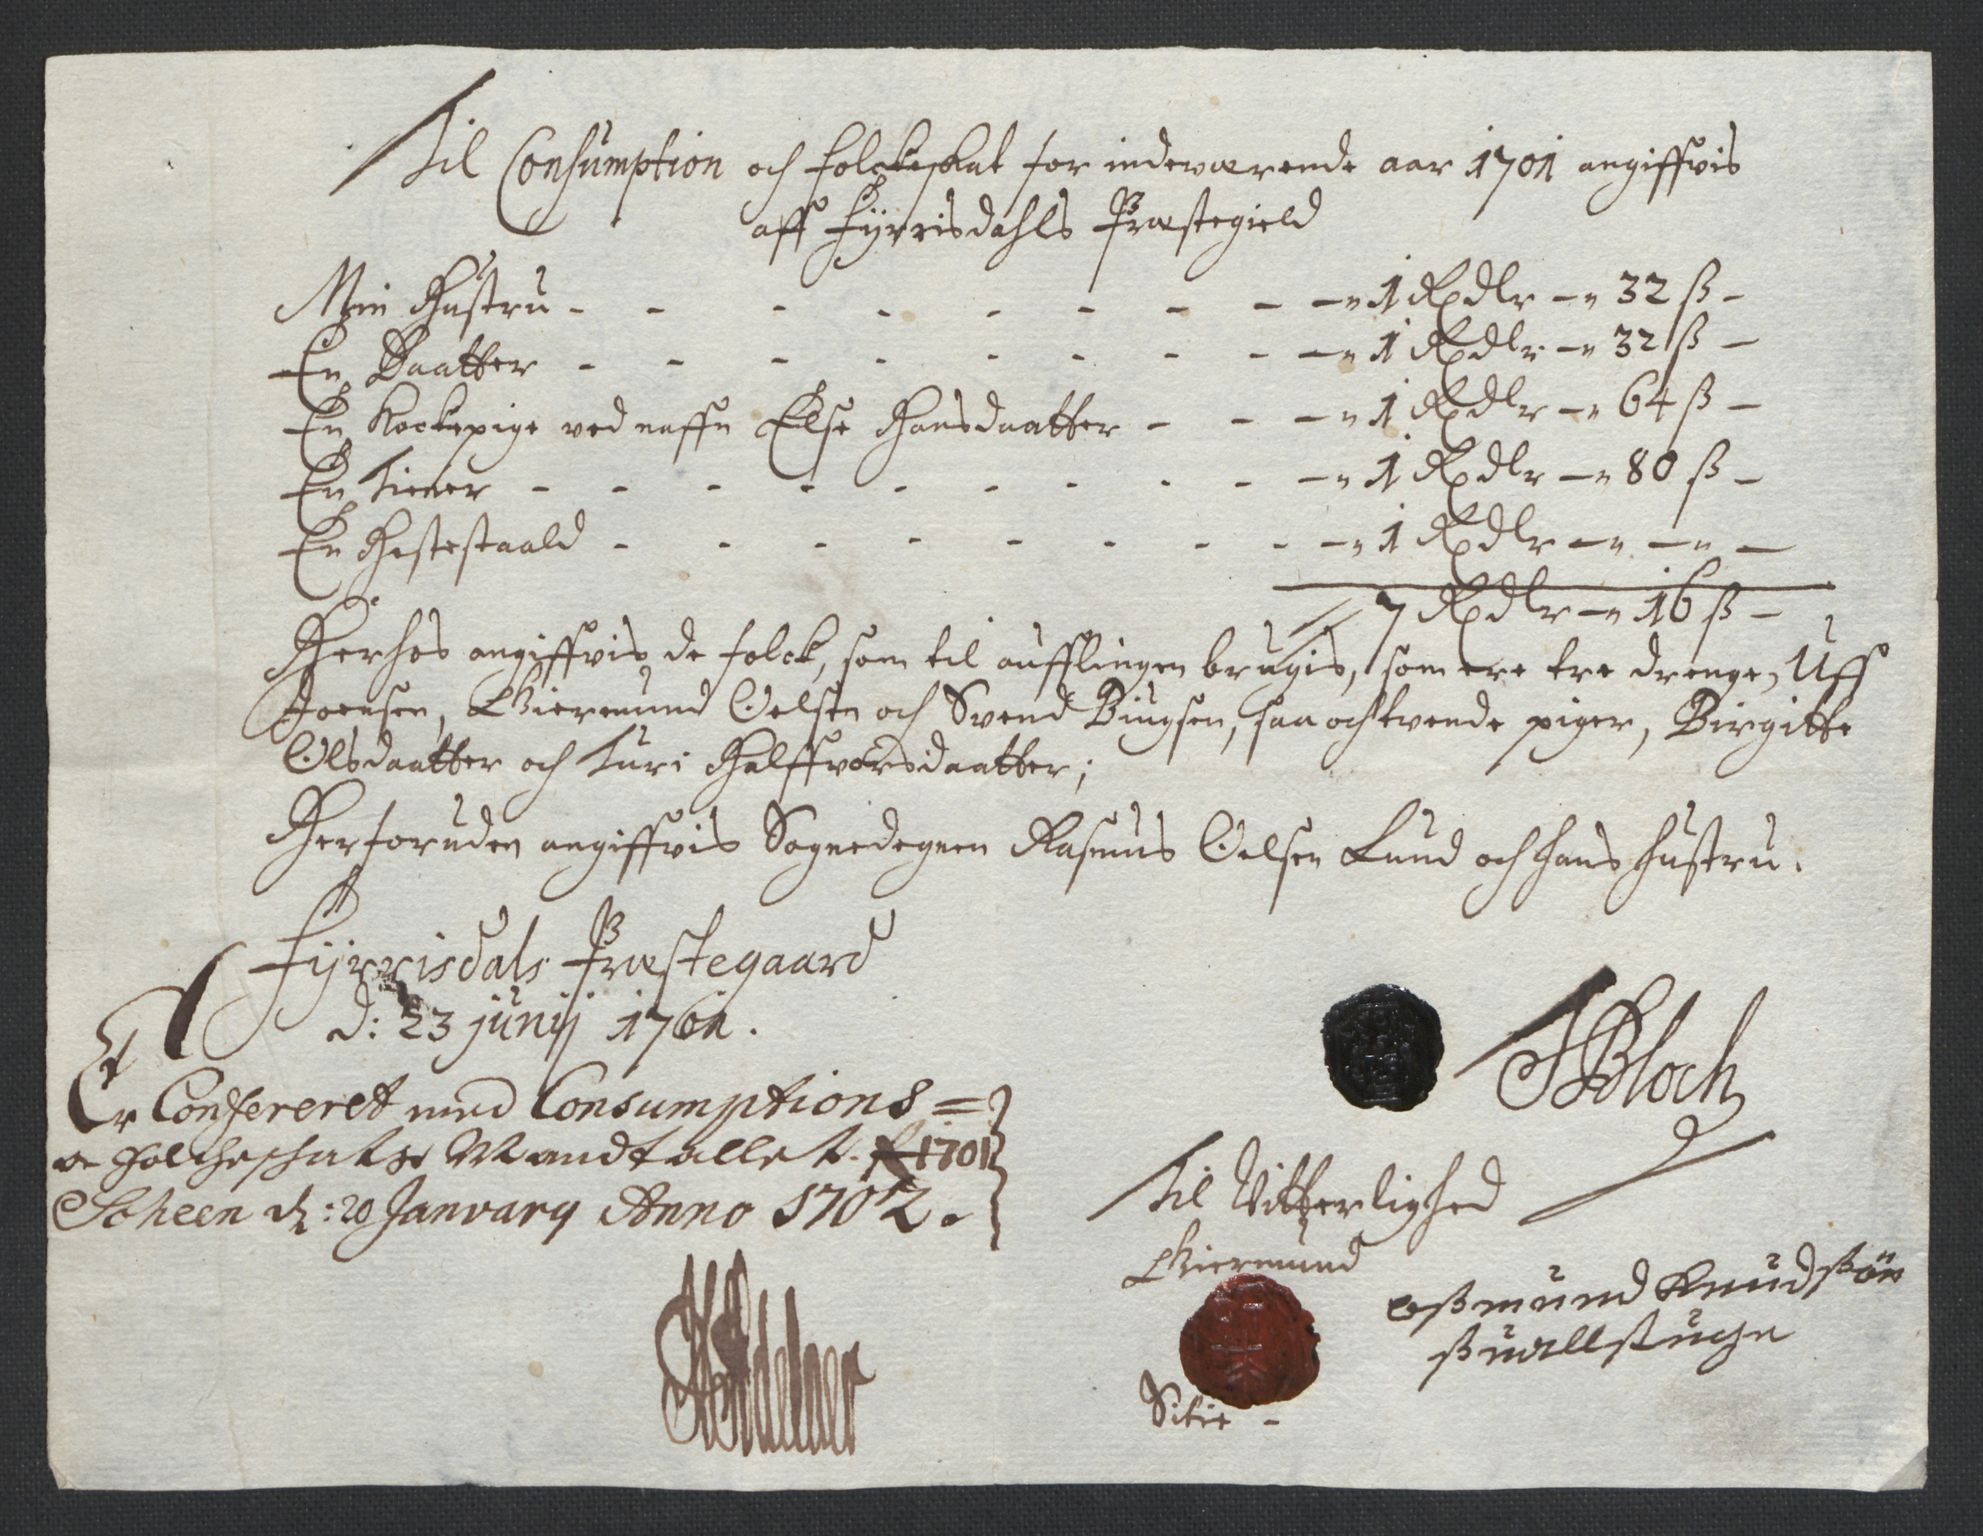 Til Consumption och folckeskat for indeværende aar 1701 angiffvis
aff Fyrrisdahls Præstegield
Min Hustru - - - - - - - - - 1 Rdlr - 32 ß -
En Daatter - - - - - - - - - 1 Rdlr - 32 ß -
En Kockepige ved naffn Else Hansdaatter - - - 1 Rdlr - 64 ß -
En Tiener - - - - - - - - - 1 Rdlr - 80 ß -
En Hestestaald - - - - - - - - - 1 Rdlr - - -
7 Rdlr - 16 ß -
Herhos angiffvis de folck, som til aufflingen brugis, som ere tre drenge, Uff
Joensen, Giermund Oelsen och Svend Biugsen, saa och tvende piger, Birgitte
Olsdaatter och Turi Halffvorsdaatter;
Herforuden angiffvis Sognedegnen Rasmus Oelsen Lund och hans hustru.
Fyrrisdals Præstegaard
d: 23 junij 1701.
Er Confereret med Consumptions =
oc Folcheschatz Mandtallet f 1701
Scheen d: 20 January Anno 1702.
HBloch
Til Vitterlighed
Giermund
Sitie -
Aßmund Knudßøn
ßuallstuge